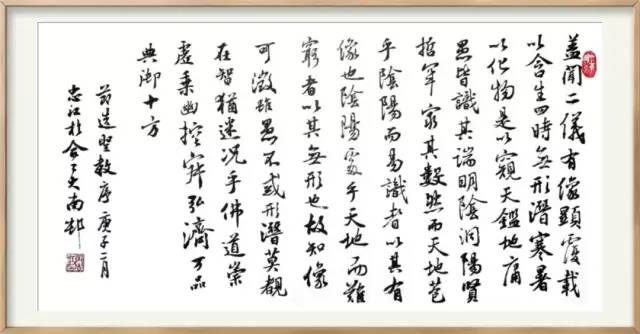 盖聞二儀有像顯覆載
以含生四時無形潛寒暑
以化物是以窺天鑑地庸
愚皆識其端明陰洞陽賢
哲罕窮其數然而天地苞
乎陰陽而易識者以其有
像也陰陽處乎天地而難
窮者以其無形也故知像
可徵雖愚不惑形潛莫覩
在智猶迷況乎佛道崇
虛乘幽控寂弘濟万品
典御十方
節選聖教序庚子二月
忠江於
大南邨